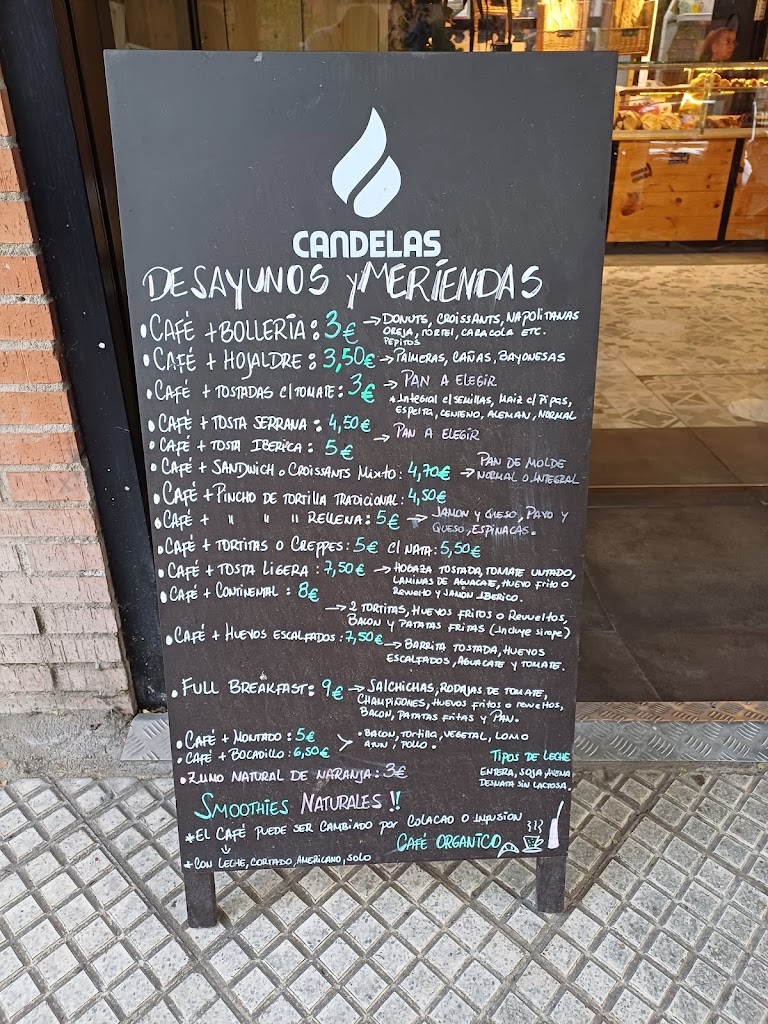 CANDELAS
DESAYUNOS Y MERIENDAS
• CAFÉ + BOLLERÍA: 3€ → DONUTS, CROISSANTS, NAPOLITANAS
OREJA, TORTEL, CARACOLA ETC.
PEPITOS
• CAFÉ + HOJALDRE: 3,50€ → PALMERAS, CAÑAS, BAYONESAS
• CAFÉ + TOSTADAS C/TOMATE: 3€ → PAN A ELEGIR
* INTEGRAL C/SEMILLAS, MAIZ C/PIPAS,
ESPELTA, CENTENO, ALEMAN, NORMAL
• CAFÉ + TOSTA SERRANA: 4,50€
• CAFÉ + TOSTA IBERICA: 5€ → PAN A ELEGIR
• CAFÉ + SANDWICH O CROISSANTS MIXTO: 4,70€ → PAN DE MOLDE
NORMAL O INTEGRAL
• CAFÉ + PINCHO DE TORTILLA TRADICIONAL: 4,50€
• CAFÉ + " " " RELLENA: 5€ → JAMON Y QUESO, PAVO Y
QUESO, ESPINACAS.
• CAFÉ + TORTITAS O CREPPES: 5€ C/NATA: 5,50€
• CAFÉ + TOSTA LIGERA: 7,50€ → HOGAZA TOSTADA, TOMATE UNTADO,
LAMINAS DE AGUACATE, HUEVO FRITO O
REVUELTO Y JAMÓN IBERICO.
• CAFÉ + CONTINENTAL: 8€
→ 2 TORTITAS, HUEVOS FRITOS O REVUELTOS,
BACON Y PATATAS FRITAS (INCLUYE SIROPE)
• CAFÉ + HUEVOS ESCALFADOS: 7,50€ → BARRITA TOSTADA, HUEVOS
ESCALFADOS, AGUACATE Y TOMATE.
• FULL BREAKFAST: 9€ → SALCHICHAS, RODAJAS DE TOMATE,
CHAMPIÑONES, HUEVOS FRITOS O REVUELTOS,
BACON, PATATAS FRITAS Y PAN.
• CAFÉ + MONTADO: 5€
• CAFÉ + BOCADILLO: 6,50€
• BACON, TORTILLA, VEGETAL, LOMO
ATUN, POLLO.
• ZUMO NATURAL DE NARANJA: 3€
TIPOS DE LECHE
ENTERA, SOJA, AVENA
DESNATA SIN LACTOSA.
SMOOTHIES NATURALES !!
* EL CAFÉ PUEDE SER CAMBIADO POR COLACAO O INFUSION
CAFÉ ORGANICO
* CON LECHE, CORTADO, AMERICANO, SOLO